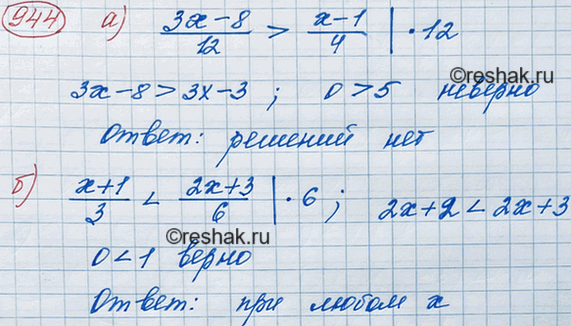 944 а) (3x-8)/12 > (x-1)/4 | · 12
3x-8 > 3x-3 ; 0 > 5 неверно
©reshak.ru
Ответ: решений нет
б) (x+1)/3 < (2x+3)/6 | · 6 ; 2x+2 < 2x+3
©reshak.ru
0 < 1 верно
Ответ: при любом x